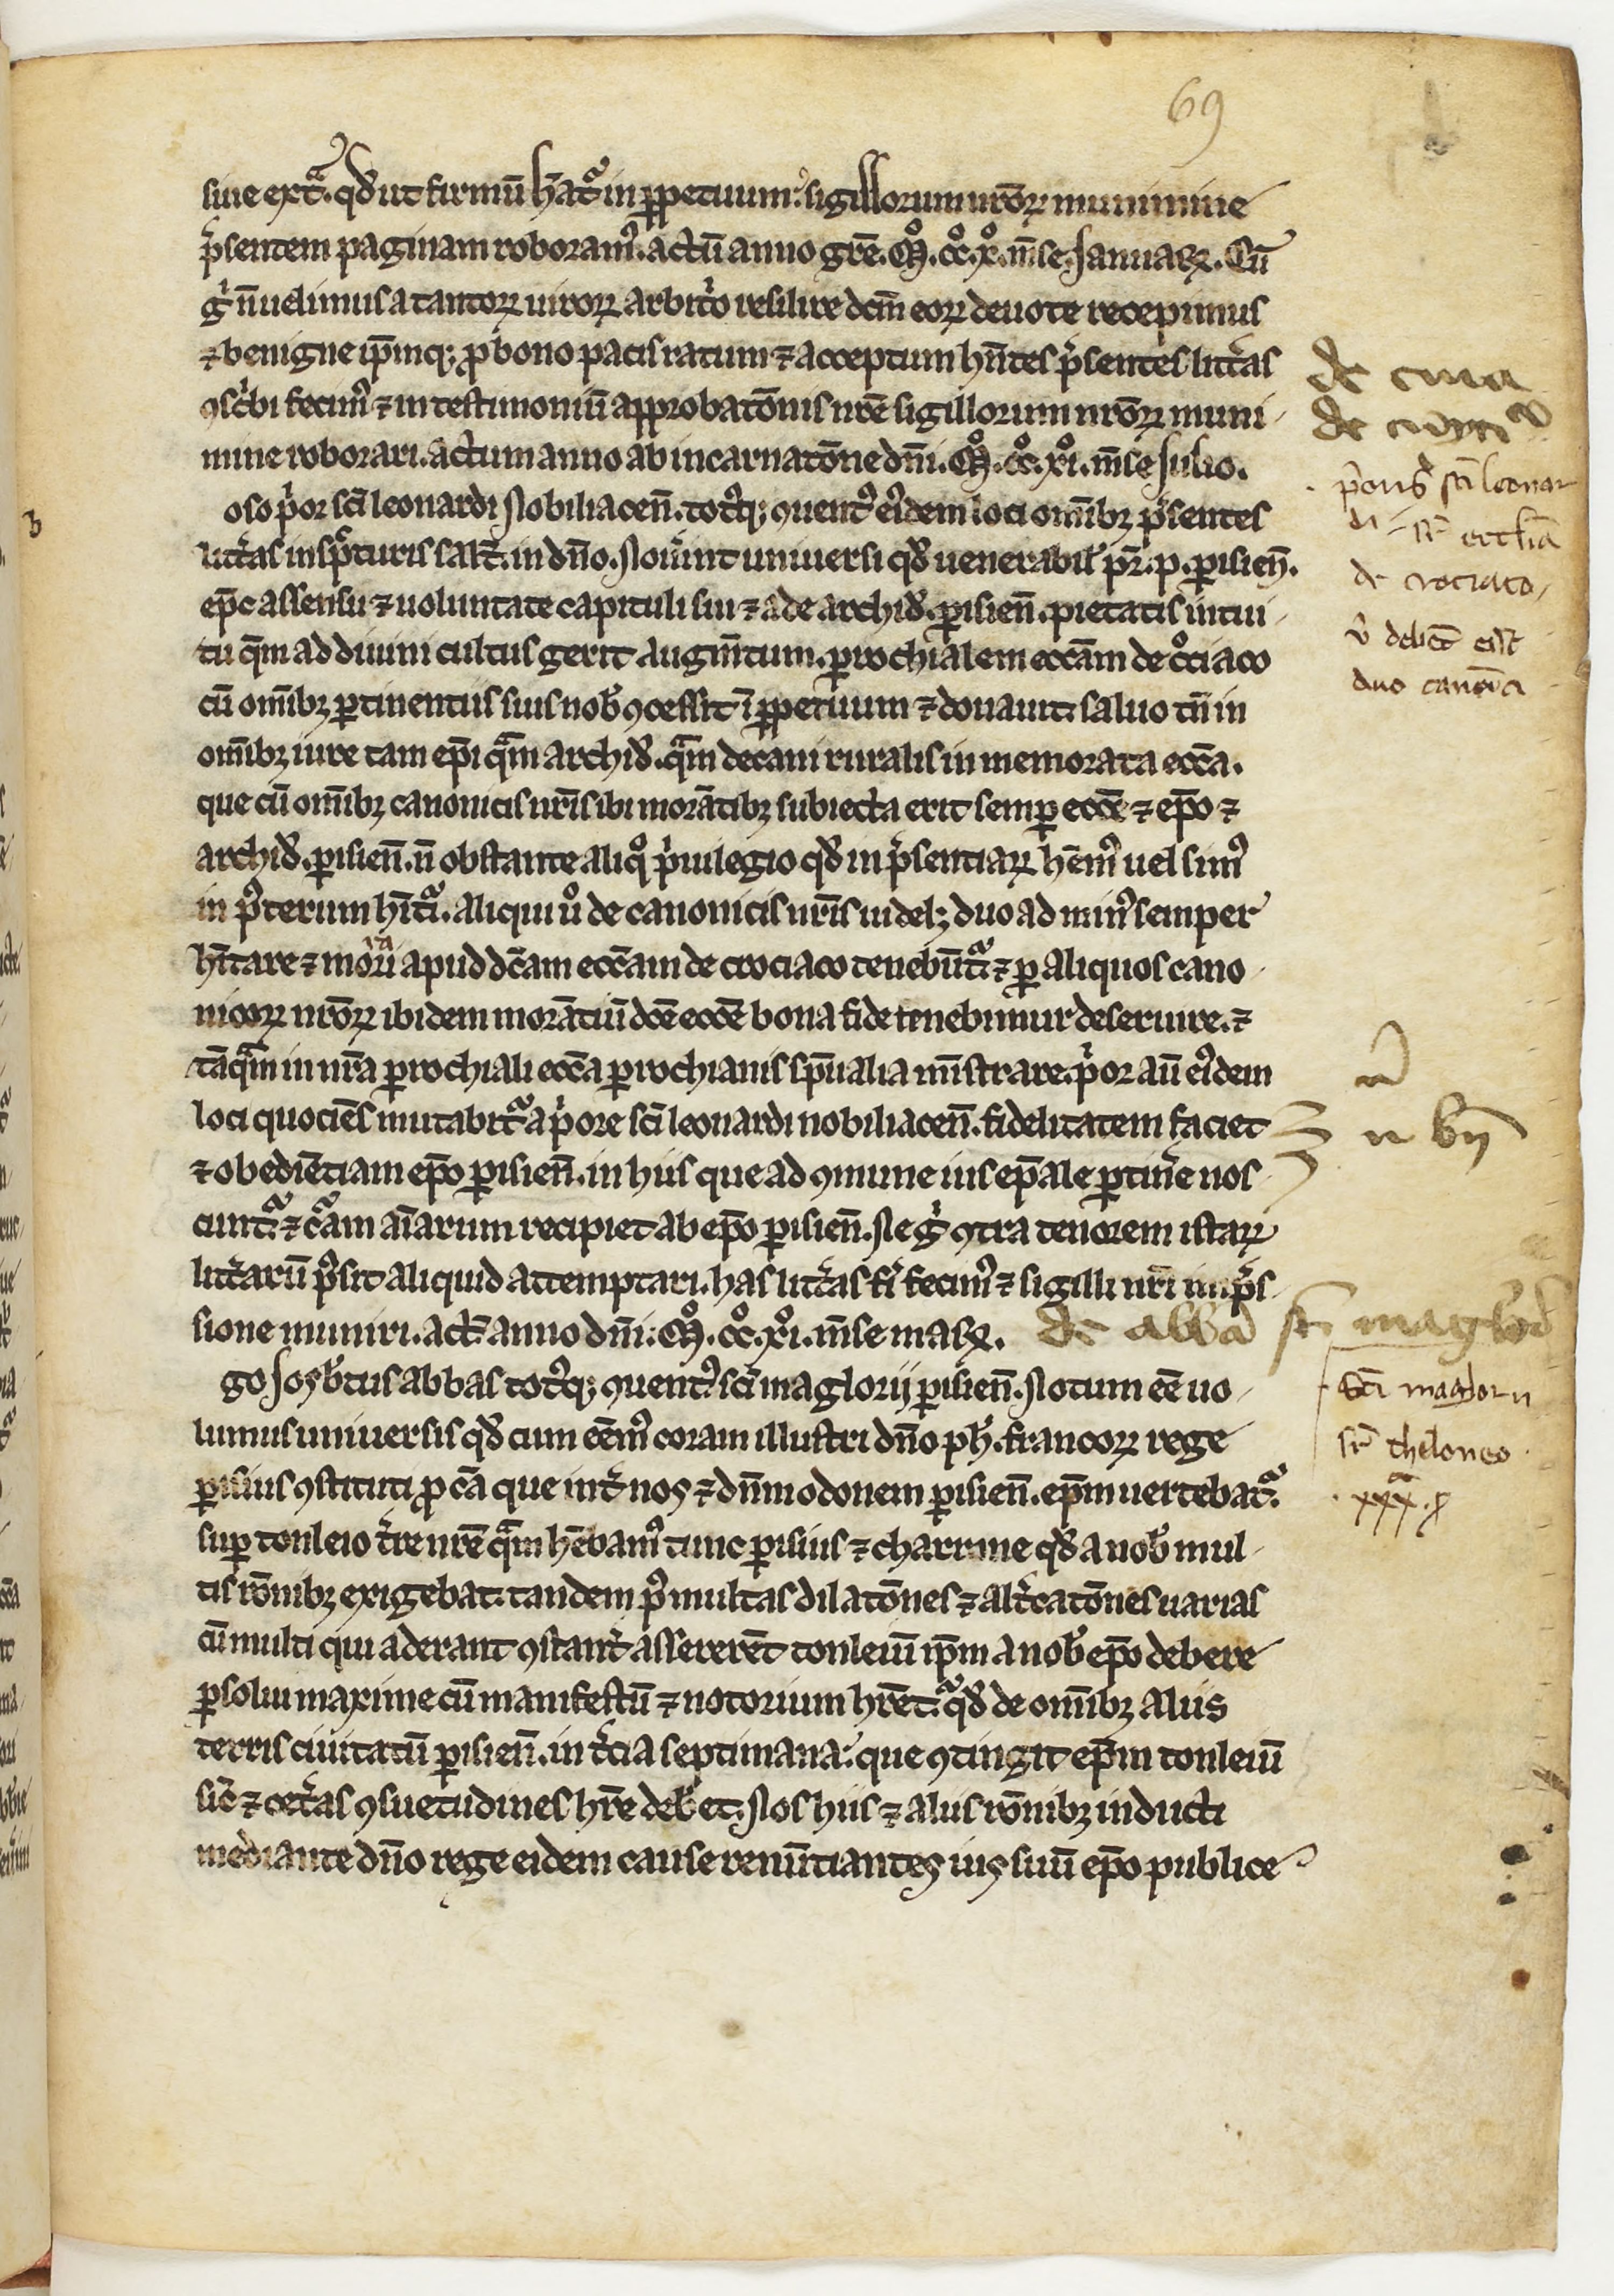 69
siue extᵃ. qđ ut firmū hat᷑ in ꝑpetuum. sigillorum nr̄oꝝ munimine
p̾sentem paginam roboram᷒. actū anno grē. M̊. cc̊. x̊. m̄se Januaꝝ. Cū
g̾ n̄ uelimus a tantoꝝ uiroꝝ arbitͥo resilire dcm̄ eoꝝ deuote recepimus
⁊ benigne ip̄mqꝫ ꝓ bono pacis ratum ⁊ acceptum hn̄tes p̾sentes litt̾as
ꝯsc̾bi fecim᷒ ⁊ in testimoniū approbatōnis nrē sigillorum nr̄oꝝ muni
mine roborari. actum anno ab incarnatōne dn̄i. M̊. cc̊. xı̊. m̄se Julio.
oso p̾or sc̄i leonardi Nobiliacen̄. totᷤqꝫ ꝯuent᷒ ei᷒dem loci om̄ibꝫ p̾sentes
litt̾as insp̾cturis salt̄. in dn̄o. Nou̾int uniuersi qđ uenerabił pr̄. p. ꝑisien̄.
ep̄c assensu ⁊ uoluntate capituli sui ⁊ ade archiđ. ꝑisien̄. pietatis intui
tu q̄m ad diuini cultus gerit augm̄tum. ꝑrochialem eccām de cͦciaco
cū om̄ibꝫ ꝑtinentiis suis nob̄ ꝯcessit ī ꝑpetuum ⁊ donauit. saluo tn̄ in
om̄ibꝫ iure tam ep̄i qᵃm archiđ. qᵃm decani ruralis in memorata eccā.
que cū om̄ibꝫ canonicis nr̄is ibi morātibꝫ subiecta erit semꝑ eccē ⁊ ep̄o ⁊
archiđ. ꝑisien̄. n̄ obstante aliqͦ p̾iuilegio qđ in p̾sentiaꝝ hēm᷒ uel sim᷒
in p᷒terum hīt᷑i. aliqui uͦ de canonicis nr̄is uidelꝫ duo ad min᷒ semper
hītare ⁊ morari apud dc̄am eccām de crociaco tenebūt᷑ ⁊ ꝑ aliquos cano
nicoꝝ nr̄oꝝ ibidem morātiū dcē eccē bona fide tenebimur deseruire. ⁊
tāqᵃm in nr̄a ꝑrochiali eccā ꝑrochianis sp̄ualia mīstrare. p̾or aū ei᷒dem
loci quociēs mutabit᷑ a p̾ore sc̄i leonardi nobiliacen̄. fidelitatem faciet
⁊ obediētiam ep̄o ꝑisien̄. in hiis que ad ꝯmune ius ep̄ale ꝑtin̾e nos
cunt᷑. ⁊ cᵃm aīarum recipiet ab ep̄o ꝑisien̄. Ne g̾ ꝯtra tenorem istaꝝ
litt̾arū p᷒sit aliquid attemptari. has litt̾as fi᷑ fecim᷒ ⁊ sigilli nr̄i imp̾s
sione muniri. act̄ anno dn̄i. M̊. cc̊. xı̊. m̄se maꝝ.
de abbā sc̄i maglorii
go Josb̾tus abbas totᷤqꝫ ꝯuent᷒ sc̄i maglorij ꝑisien̄. Notum eē uo
lumus uniuersis qđ cum eēm᷒ coram illustri dn̄o ph̄. francoꝝ rege
ꝑisius ꝯstituti ꝓ cā que int̾ nos ⁊ dn̄m odonem ꝑisien̄. ep̄m uertebat᷑.
suꝑ tonleio t̾re nrē qᵃm hēbam᷒ tunc ꝑisius ⁊ charrone qđ a nob̄ mul
tis rōnibꝫ exigebat. tandem p᷒ multas dilatōnes ⁊ alt̾catōnes uarias
cū multi qui aderant ꝯstant̾ assererēt tonleiū ip̄m a nob̄ ep̄o debere
ꝑsolui maxime cū manifestū ⁊ notorium hr̄et᷑ qđ de om̄ibꝫ aliis
terris ciuitatū ꝑisien̄. in t̾cia septimana. que ꝯtingit ep̄m tonleiū
sic̄ ⁊ cet̾as ꝯsuetudines hr̄e debet. Nos hiis ⁊ aliis rōnibꝫ inducti
mediante dn̄o rege eidem cause renūtiantes ius suū ep̄o publice
de cura
p̾oris sc̄i leonar
di sr̄ eccliā
de crociaco
duo canoīci
sc̄i maglorii
sr̄ theloneo
xxx